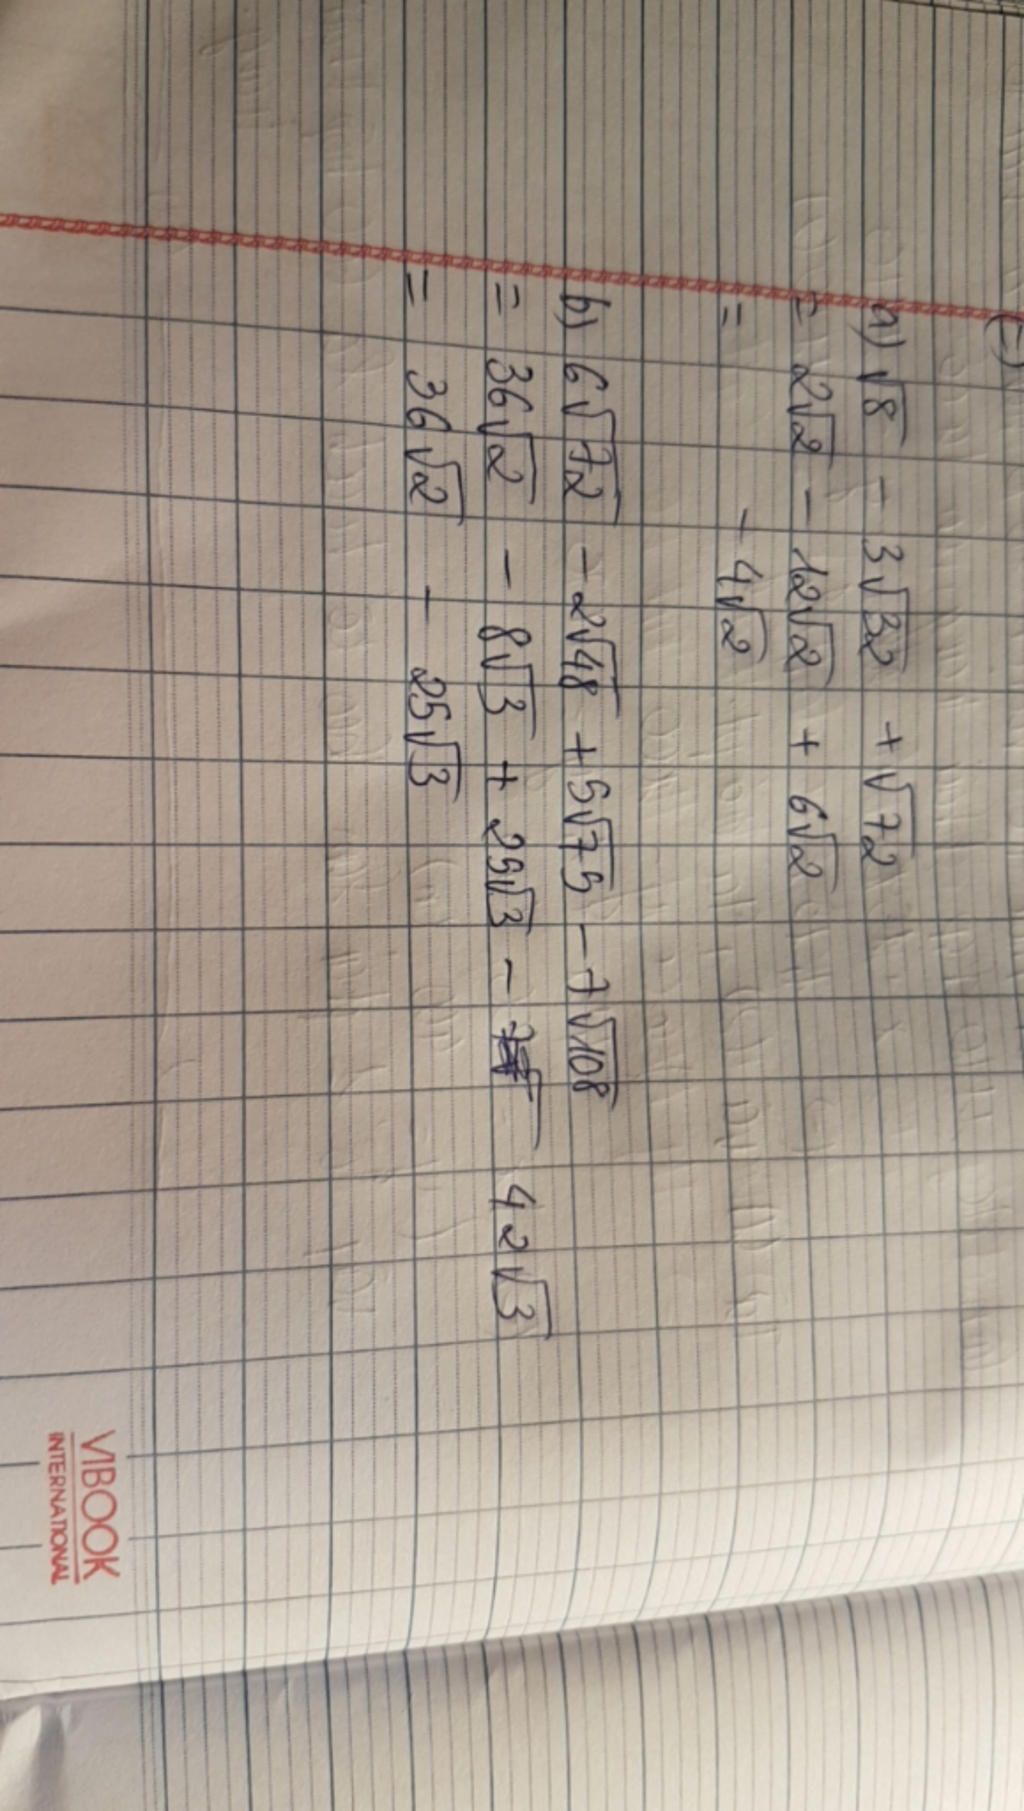 a) √8 - 3√32 + √72
= 2√2 - 12√2 + 6√2
= - 4√2
b) 6√72 - 2√48 + 5√75 - 7√108
= 36√2 - 8√3 + 25√3 - 42√3
= 36√2 - 25√3
VIBOOK
INTERNATIONAL